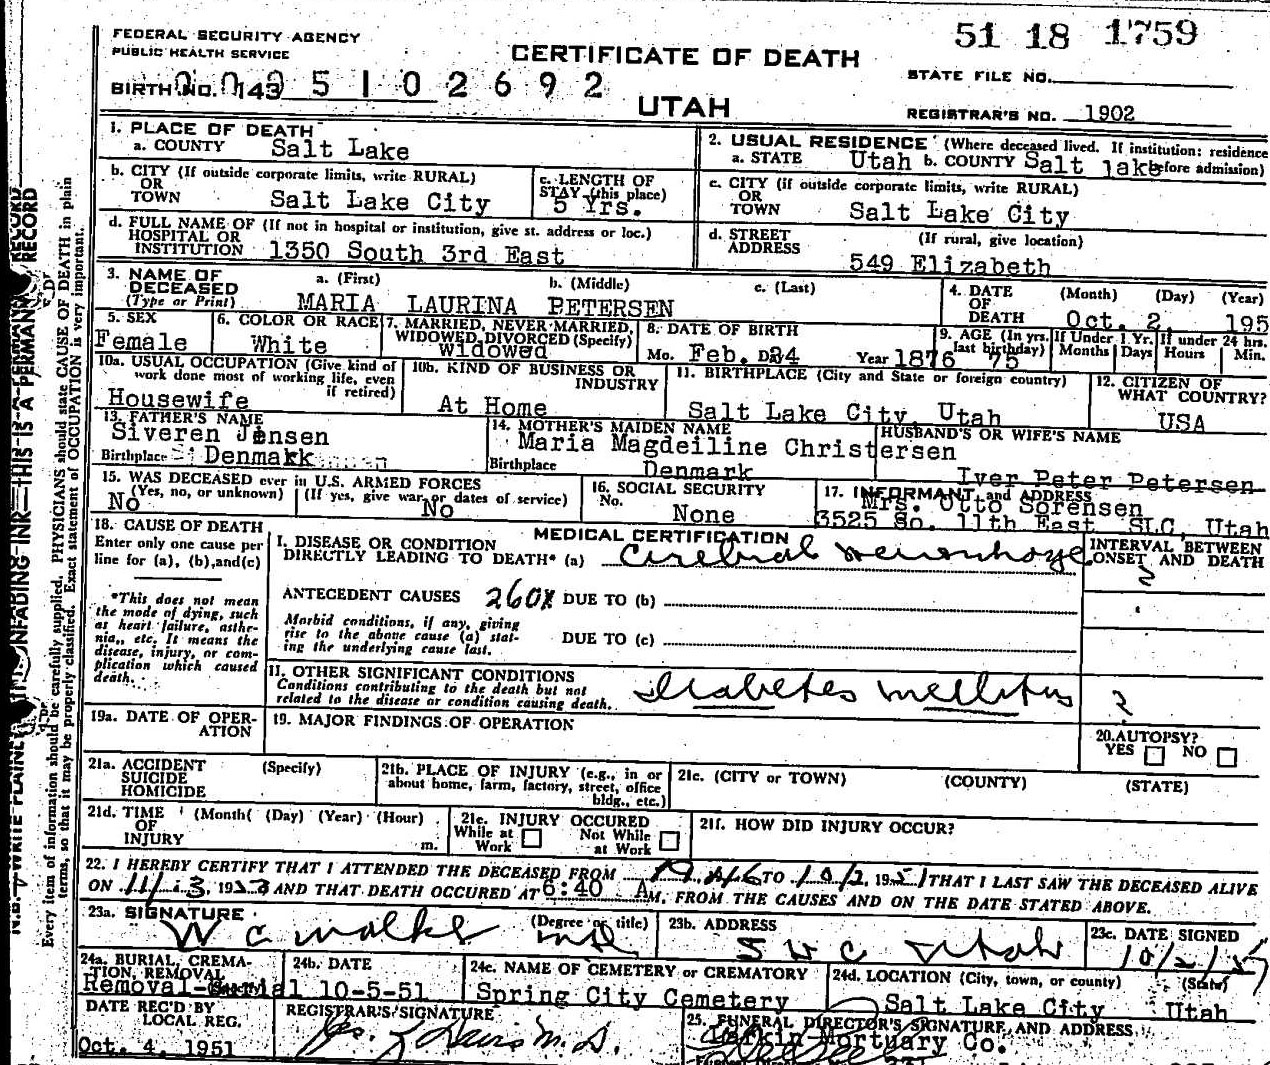 51 18 1759
FEDERAL SECURITY AGENCY
PUBLIC HEALTH SERVICE
CERTIFICATE OF DEATH
STATE FILE NO.
BIRTH NO. 143
5 1 0 2 6 9 2
UTAH
REGISTRAR'S NO. 1902
1. PLACE OF DEATH
a. COUNTY Salt Lake
2. USUAL RESIDENCE (Where deceased lived. If institution: residence
a. STATE Utah b. COUNTY Salt lake before admission)
b. CITY (If outside corporate limits, write RURAL)
OR
TOWN Salt Lake City
c. LENGTH OF
STAY (this place)
5 Yrs.
c. CITY (if outside corporate limits, write RURAL)
OR
TOWN Salt Lake City
d. FULL NAME OF (If not in hospital or institution, give st. address or loc.)
HOSPITAL OR
INSTITUTION 1350 South 3rd East
d. STREET (If rural, give location)
ADDRESS
549 Elizabeth
3. NAME OF
DECEASED
(Type or Print)
a. (First) b. (Middle) c. (Last)
MARIA LAURINA PETERSEN
4. DATE (Month) (Day) (Year)
OF
DEATH Oct. 2, 195
5. SEX
Female
6. COLOR OR RACE
White
7. MARRIED, NEVER MARRIED,
WIDOWED, DIVORCED (Specify)
Widowed
8. DATE OF BIRTH
Mo. Feb. Da 24 Year 1876
9. AGE (In yrs.
last birthday)
75
If Under 1 Yr.
Months Days
If under 24 hrs.
Hours Min.
10a. USUAL OCCUPATION (Give kind of
work done most of working life, even
if retired)
Housewife
10b. KIND OF BUSINESS OR
INDUSTRY
At Home
11. BIRTHPLACE (City and State or foreign country)
Salt Lake City, Utah
12. CITIZEN OF
WHAT COUNTRY?
USA
13. FATHER'S NAME
Siveren Jensen
Birthplace Denmark
14. MOTHER'S MAIDEN NAME
Maria Magdeiline Christersen
Birthplace Denmark
HUSBAND'S OR WIFE'S NAME
Iver Peter Petersen
15. WAS DECEASED ever in U.S. ARMED FORCES
(Yes, no, or unknown) (If yes, give war or dates of service)
No No
16. SOCIAL SECURITY
No.
None
17. INFORMANT and ADDRESS
Mrs. Otto Sorensen
3525 So. 11th East SLC, Utah
18. CAUSE OF DEATH
Enter only one cause per
line for (a), (b), and (c)
*This does not mean
the mode of dying, such
as heart failure, asthe-
nia, etc. It means the
disease, injury, or com-
plication which caused
death.
MEDICAL CERTIFICATION
I. DISEASE OR CONDITION
DIRECTLY LEADING TO DEATH* (a) Cerebral hemorrhage
INTERVAL BETWEEN
ONSET AND DEATH
?
ANTECEDENT CAUSES 260X DUE TO (b)
Morbid conditions, if any, giving
rise to the above cause (a) stat-
ing the underlying cause last.
DUE TO (c)
11. OTHER SIGNIFICANT CONDITIONS
Conditions contributing to the death but not
related to the disease or condition causing death.
Diabetes mellitus ?
19a. DATE OF OPER-
ATION
19. MAJOR FINDINGS OF OPERATION
20. AUTOPSY?
YES NO
21a. ACCIDENT (Specify)
SUICIDE
HOMICIDE
21b. PLACE OF INJURY (e.g., in or
about home, farm, factory, street, office
bldg., etc.)
21c. (CITY or TOWN) (COUNTY) (STATE)
21d. TIME (Month( (Day) (Year) (Hour)
OF
INJURY m.
21e. INJURY OCCURED
While at
Work
Not While
at Work
21f. HOW DID INJURY OCCUR?
22. I HEREBY CERTIFY THAT I ATTENDED THE DECEASED FROM TO 10/2, 1951 THAT I LAST SAW THE DECEASED ALIVE
ON 19 AND THAT DEATH OCCURED AT 6:40 A M. FROM THE CAUSES AND ON THE DATE STATED ABOVE.
23a. SIGNATURE (Degree or title)
W C MD
23b. ADDRESS
S L C Utah
23c. DATE SIGNED
10/2/51
24a. BURIAL, CREMA-
TION, REMOVAL
Removal-Burial
24b. DATE
10-5-51
24c. NAME OF CEMETERY or CREMATORY
Spring City Cemetery
24d. LOCATION (City, town, or county) (State)
Salt Lake City Utah
DATE REC'D BY
LOCAL REG.
Oct. 4, 1951
REGISTRAR'S SIGNATURE
M. D.
25. FUNERAL DIRECTOR'S SIGNATURE AND ADDRESS
Larkin Mortuary Co.
N.B. WRITE PLAINLY UNFADING INK—THIS IS A PERMANENT RECORD
Every item of information should be carefully supplied. PHYSICIANS should state CAUSE OF DEATH in plain
terms, so that it may be properly classified. Exact statement of OCCUPATION is very important.